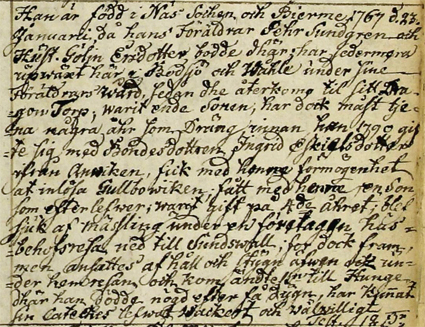 Han är född i Näs Sochen och Bierme 1767 d. 23.
Januarii, då hans Föräldrar Pehr Sundgren och
Hust. Gölin Ersdotter bodde dhär; har sedermera
upwäxt här i Bodsjö och Wåhle under sine
Föräldrars wård, sedan dhe återkomo til sitt Dra-
=gon Torp; warit ende Sonen; har dock måst tje-
na några åhr som Dräng, innan han 1790 gif-
te sig med Bondesdottren Ingrid Eskielsdotter
ifrån Anwiken, fick med henne förmögenhet
at inlösa Gullbowiken; fått med henne en son
som efterlefwer; warit gift på 4de året; blef
siuk af mässling under en företagen hus-
=behofsresa ned till Sundswall; for dock fram,
men ansattes af håll och stygn äfwen
der hemresan och kom ändtel:n till Hunge
dhär han dödde några efter få dygn, har kunnat
sin Cateches lefwat wackert och wälwilligt